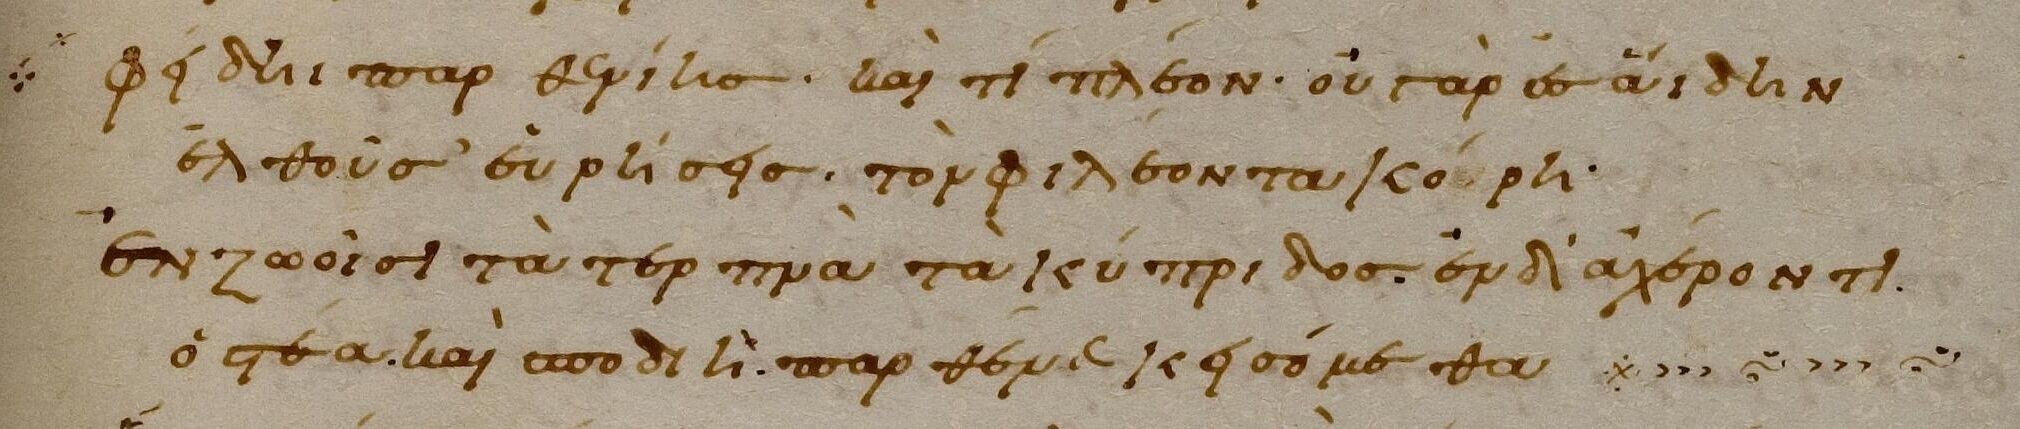 φείδηι παρθενίης· καὶ τί πλέον· οὐ γὰρ ἐς ἅιδην
ἐλθοῦσ' εὑρήσεις· τὸν φιλέοντα κόρη·
ἐν ζωοῖσι τὰ τερπνὰ τὰ κύπριδος· ἐν δ' ἀχέροντι.
ὀστέα. καὶ σποδιὴ. παρθένε κεισόμεθα